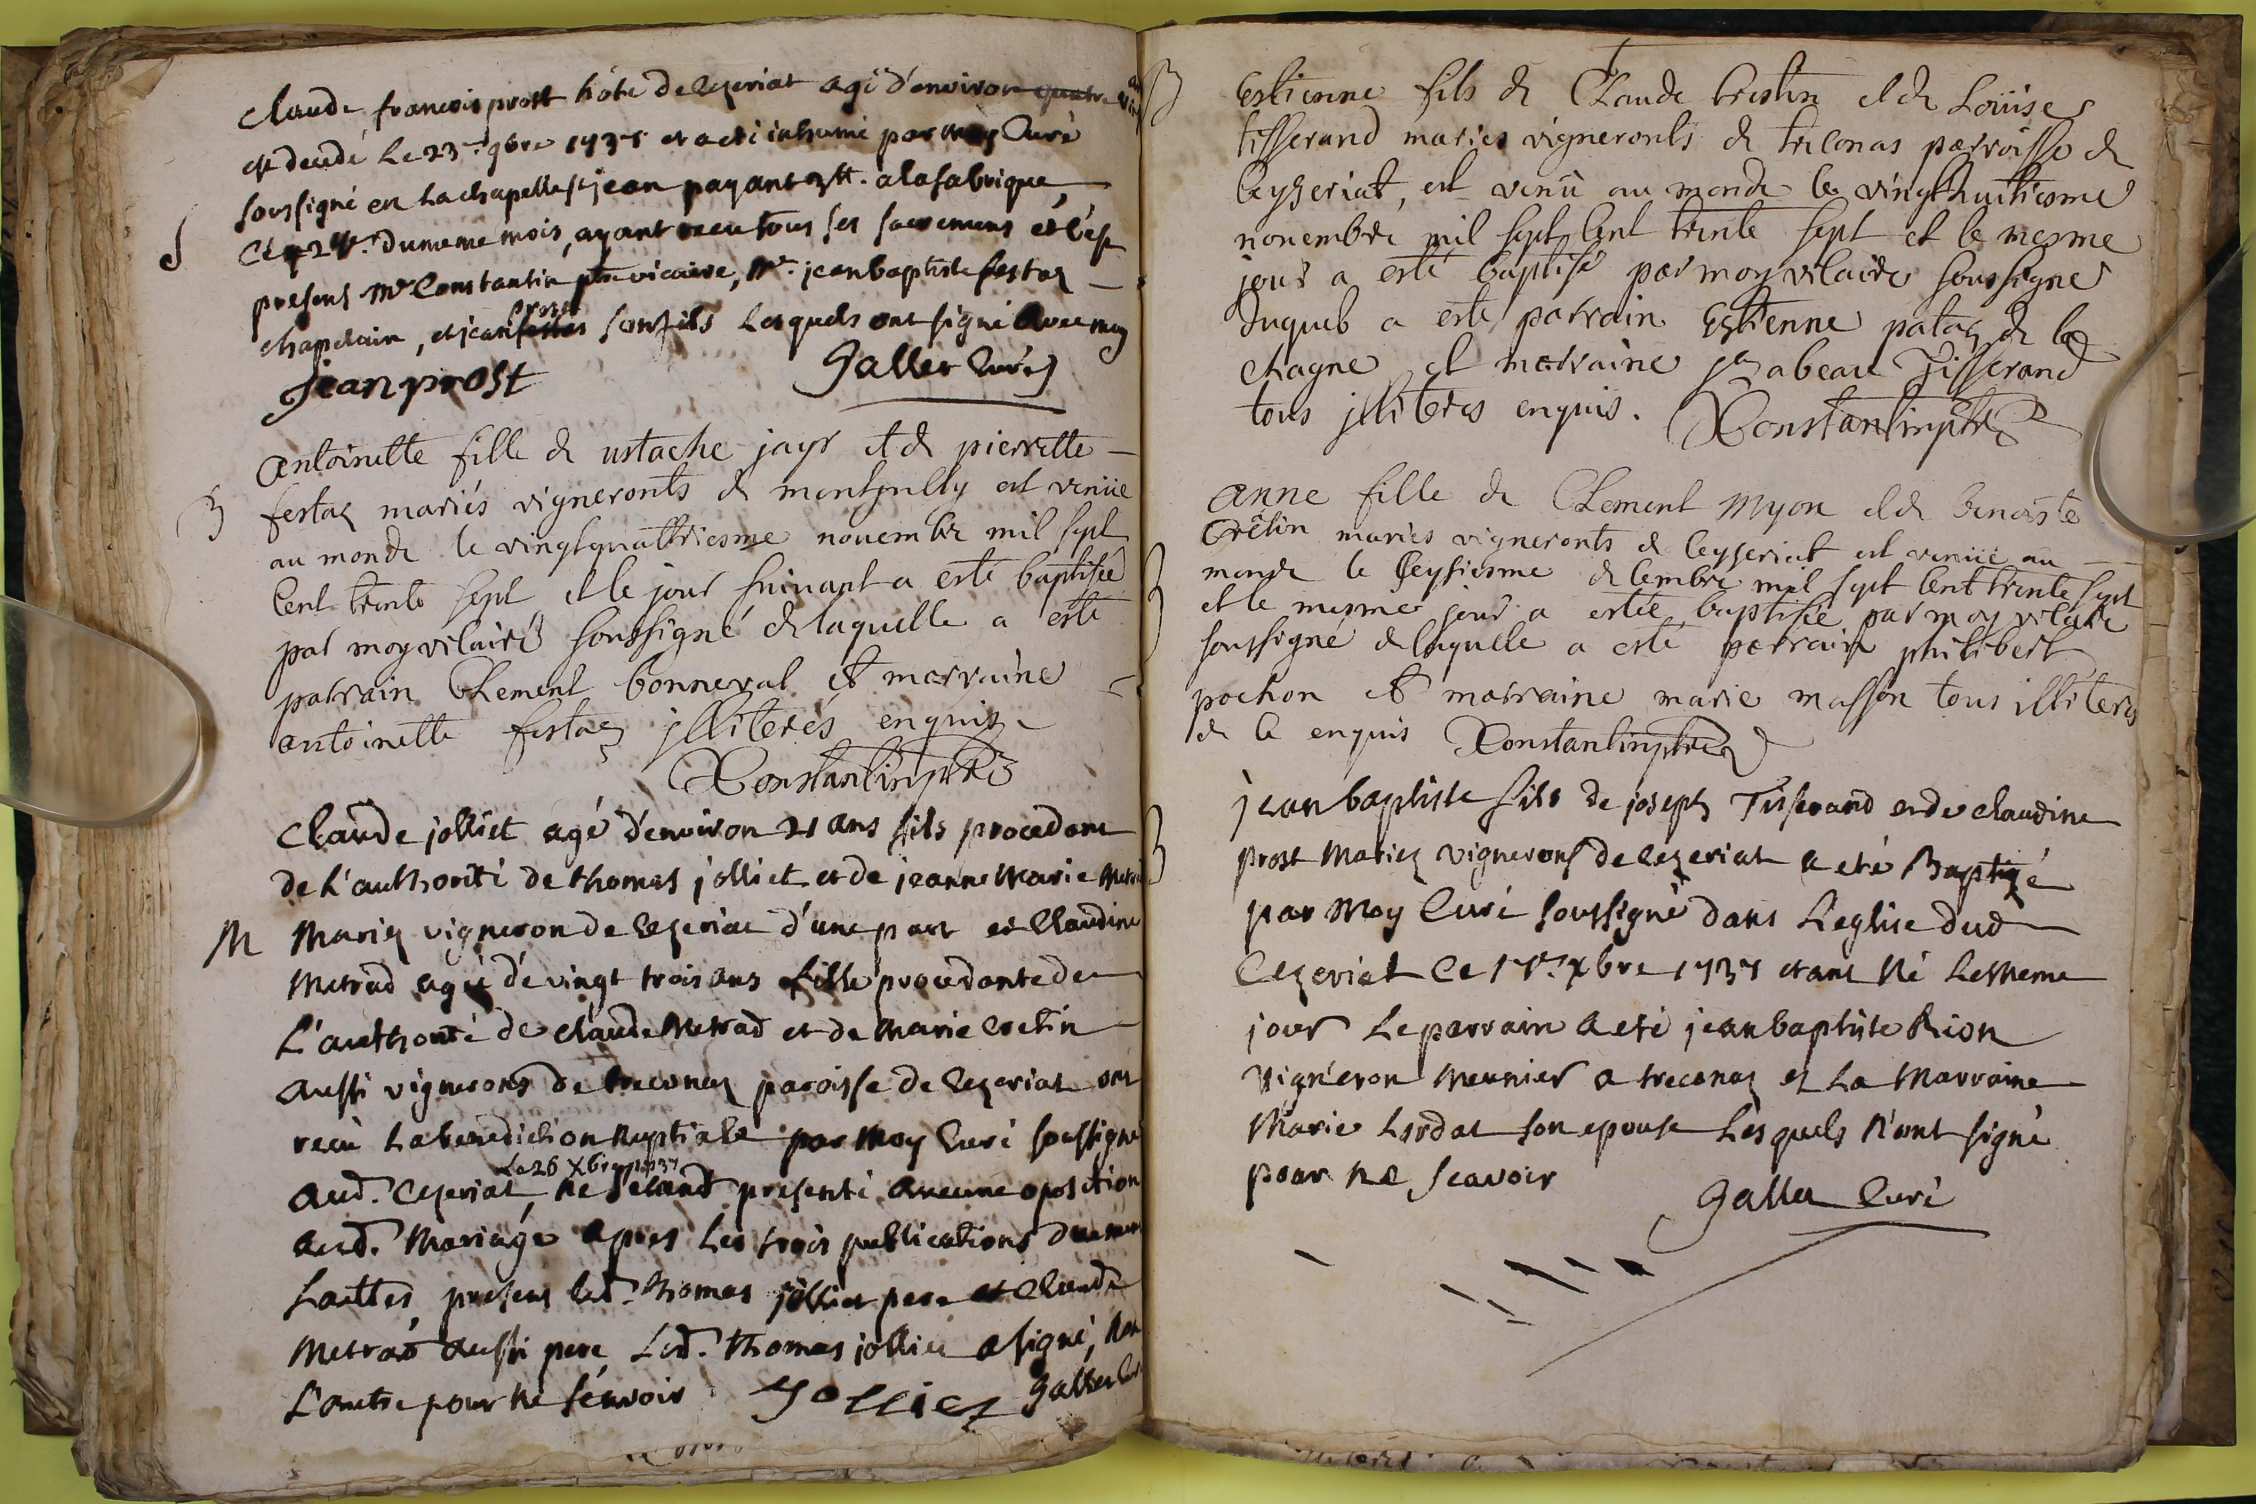 Claude francois prost hôte de Cezeriat agé d'environ quatre
est decedé Le 23e. 9bre 1737 et a eté inhumé par moy Curé
soussigné en La chapelle st jean payant 3 tt. a la fabrique,
S
Ce 24e. du meme mois, ayant recu tous ses sacremens
presens Mr Constantin ptre vicaire, Mr. jean baptiste festaz
chapelain, et jean prost son fils Lesquels ont signé avec moy
jean prost Galler Curé
Antoinette fille de ustache jayr et de pierrette
B
festaz mariés vigneronts de montjully est venüe
au monde le vingtquattriesme nouembre mil sept
Cent trente sept et le jour suivant a esté baptisée
par moy vicaire soussigné de laquelle a esté
parrain Clement bonneval et marraine
antoinette festaz jlliterés enquis
Constantin ptre
Claude jolliet agé d'environ 21 ans fils procedant
de L'authorité de thomas jolliet et de jeanne Marie Metrad
M
Mariez vigneron de Cezeriat d'une part et Claudine
Metrad agée de vingt trois ans fille procedante de
L'authorité de claude Metrad et de Marie Cretin
Aussi vignerons de treconaz paroisse de Cezeriat ont
recu La benediction Nuptiale par Moy Curé soussigné
Le 26 Xbre 1737
aud. Cezeriat, Ne s'etant presenté aucune oposition
aud. Mariage apres Les trois publications duement
faittes, presens led. thomas jolliet pere et Claude
Metrad aussi pere Led. thomas jolliet a signé, Non
L'autre pour ne scavoir Jolliet Galler Cur
B
Estienne fils de Claude Crestin et de Loüise
tisserand mariés vigneronts de treconas parroisse de
Ceyzeriat, est venü au monde le vingthuitiesme
nouembre mil sept Cent trente sept et le mesme
jour a esté baptisé par moy vicaire soussigné
duquel a esté parrain Estienne pataz de la
chagne et marraine jzabeau Tisserand
tous jlliterés enquis. Constantin ptre
B
anne fille de Clement Myon et de benoiste
Crêtin mariés vigneronts de Ceyzeriat est venüe au
monde le seysiesme decembre mil sept Cent trente sept
et le mesme jour a estée baptisée par moy vicaire
soussigné de laquelle a esté parrain philibert
pochon et marraine marie masson tous illiterés
de ce enquis Constantin ptre
B
jean baptiste fils de joseph Tisserand et de claudine
prost Mariez vignerons de Cezeriat a eté Baptizé
par Moy Curé soussigné dans L'eglise dud
Cezeriat Ce 17e. Xbre 1737 etant Né Le Meme
jour Le parrain a eté jean baptiste Rion
Vigneron Meunier a treconaz et La Marraine
Marie Lardat son epouse Lesquels N'ont signé
pour Ne scavoir
Galler Curé